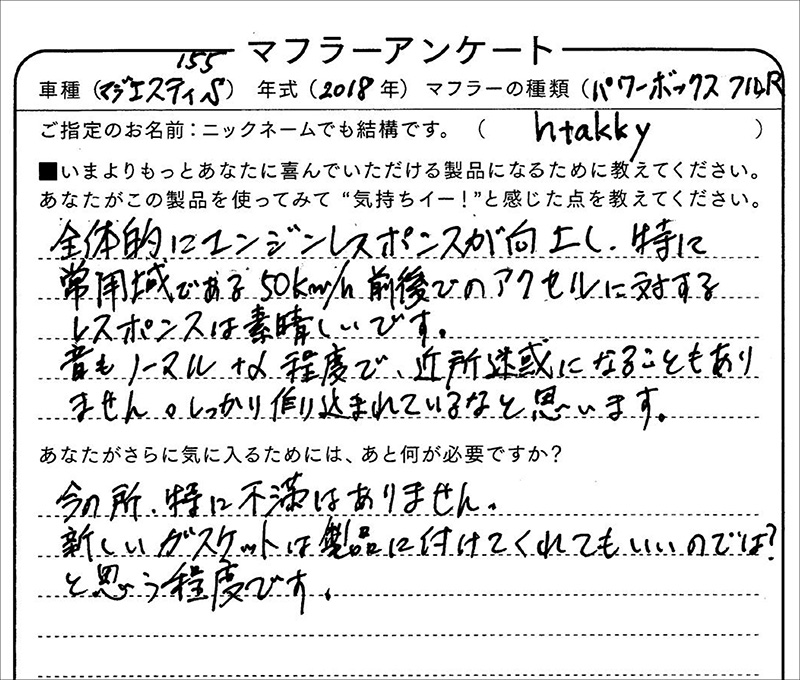 マフラーアンケート
155
車種(マジェスティS) 年式(2018年) マフラーの種類(パワーボックス フルR
ご指定のお名前:ニックネームでも結構です。( htakky )
■いまよりもっとあなたに喜んでいただける製品になるために教えてください。
あなたがこの製品を使ってみて“気持ちイー!”と感じた点を教えてください。
全体的にエンジンレスポンスが向上し、特に
常用域である50km/h前後でのアクセルに対する
レスポンスは素晴しいです。
音もノーマル+α程度で、近所迷惑になることもあり
ません。しっかり作り込まれているなと思います。
あなたがさらに気に入るためには、あと何が必要ですか?
今の所、特に不満はありません。
新しいガスケットは製品に付けてくれてもいいのでは?
と思う程度です。